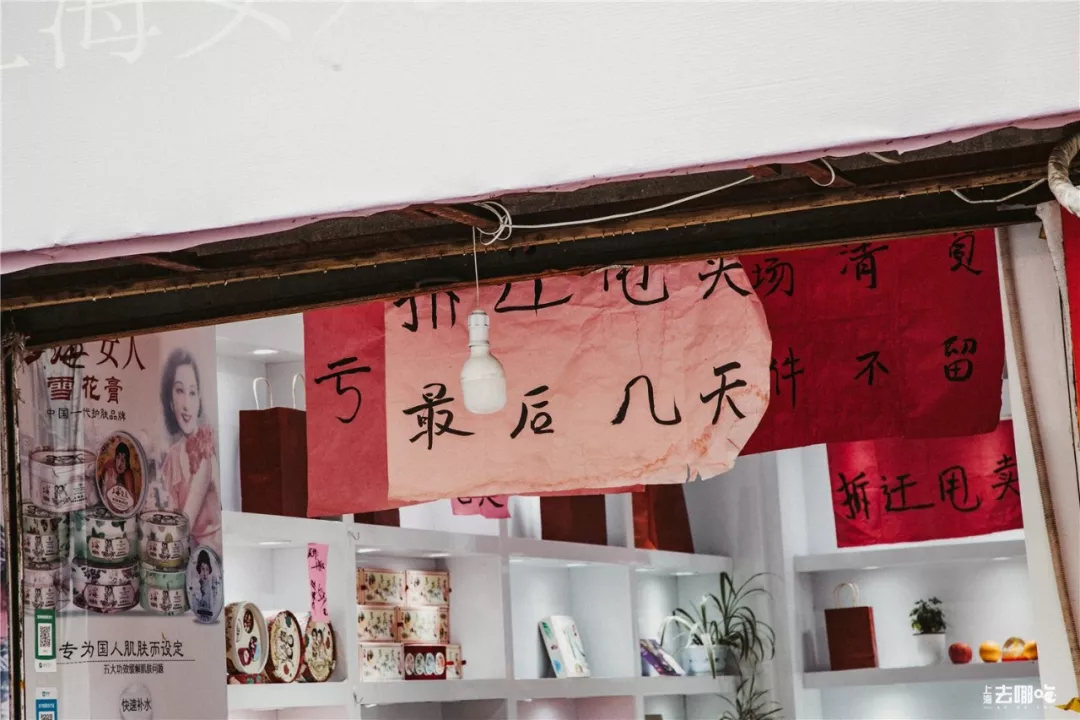 海女人
拆迁甩
最后几天
亏
头场清
件不留
拆迁甩卖
海女人
雪花膏
中国一代护肤品牌
专为国人肌肤而设定
五大功效缓解肌肤问题
快速补水
上海去哪吃